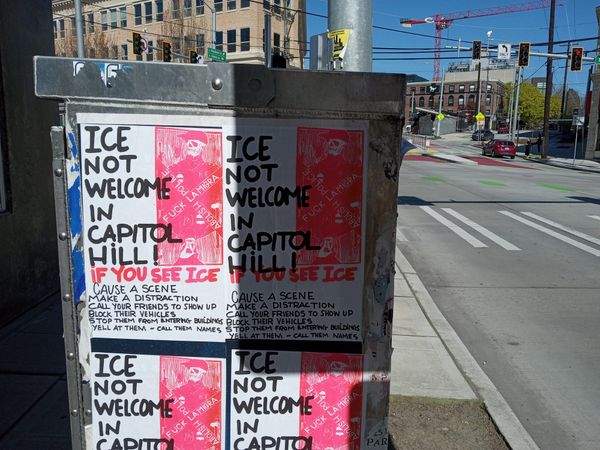 ICE
NOT
WELCOME
IN
CAPITOL
HILL!
IF YOU SEE ICE
CAUSE A SCENE
MAKE A DISTRACTION
CALL YOUR FRIENDS TO SHOW UP
BLOCK THEIR VEHICLES
STOP THEM FROM ENTERING BUILDINGS
YELL AT THEM - CALL THEM NAMES
FUCK LA MIGRA
ICE
NOT
WELCOME
IN
CAPITOL
HILL!
IF YOU SEE ICE
CAUSE A SCENE
MAKE A DISTRACTION
CALL YOUR FRIENDS TO SHOW UP
BLOCK THEIR VEHICLES
STOP THEM FROM ENTERING BUILDINGS
YELL AT THEM - CALL THEM NAMES
FUCK LA MIGRA
ICE
NOT
WELCOME
IN
CAPITOL
FUCK LA MIGRA
ICE
NOT
WELCOME
IN
CAPITOL
FUCK LA MIGRA
PAR